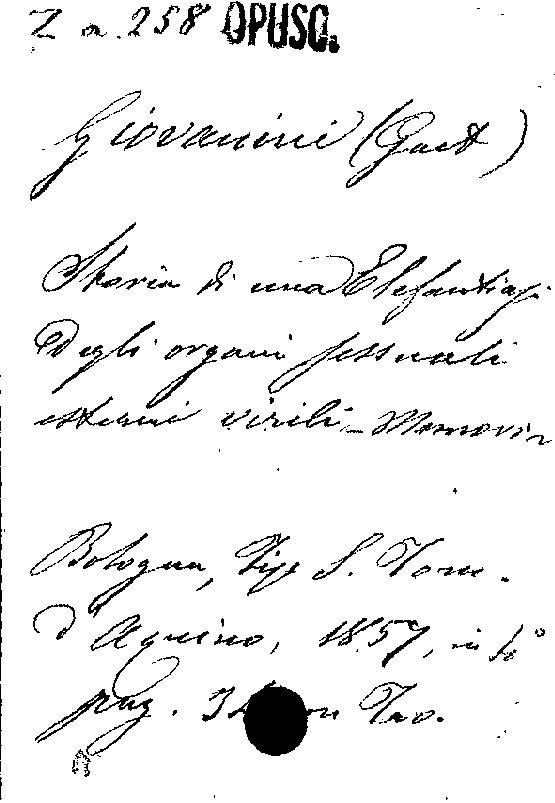 Z a. 258 OPUSC.
Giovanini (Gaet)
Storia di una Elefantiasi
degli organi sessuali
esterni virili - Memoria
Bologna, Tip. S. Tom.
d'Aquino, 1857, in 4°
pag. 3 Tav.